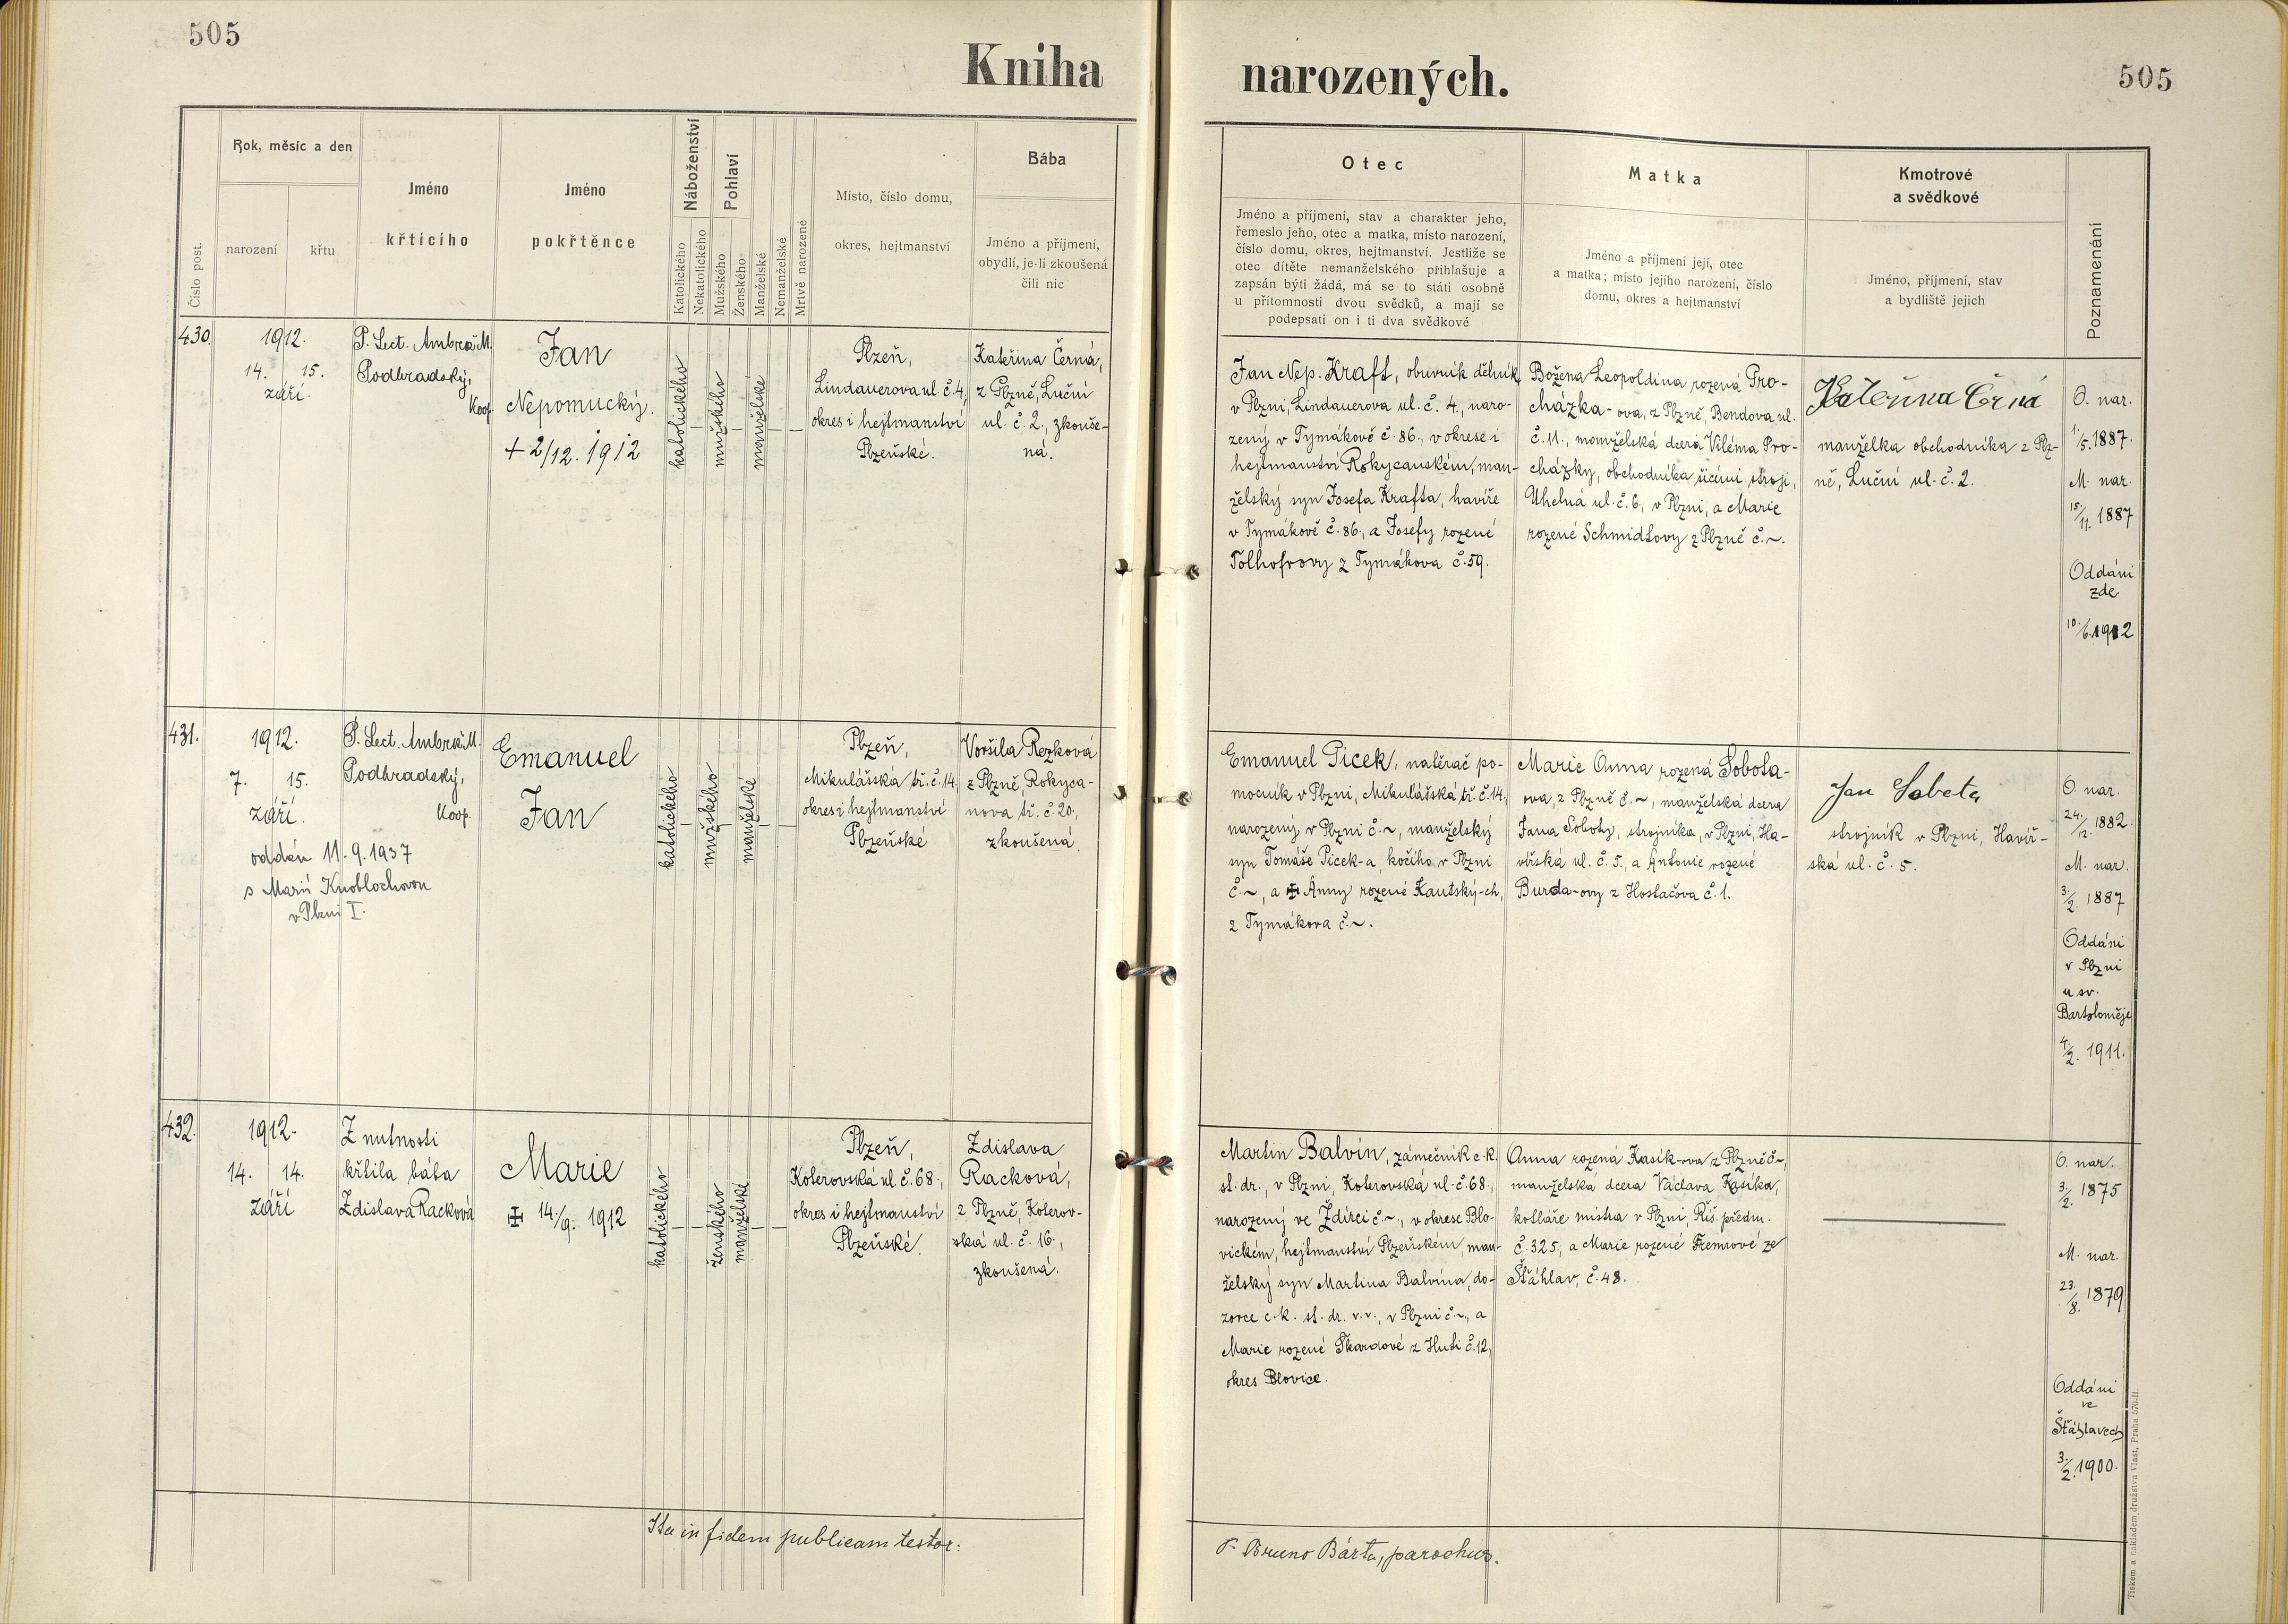 505
Kniha
narozených.
505
Číslo post.
Rok, měsíc a den
narození
křtu
Jméno
křtícího
Jméno
pokřtěnce
Náboženství
Katolického
Nekatolického
Pohlaví
Mužského
Ženského
Manželské
Nemanželské
Mrtvě narozené
Místo, číslo domu,
okres, hejtmanství
Bába
Jméno a příjmení,
obydlí, je-li zkoušená
čili nic
Otec
Jméno a příjmení, stav a charakter jeho,
řemeslo jeho, otec a matka, místo narození,
číslo domu, okres, hejtmanství. Jestliže se
otec dítěte nemanželského přihlašuje a
zapsán býti žádá, má se to státi osobně
u přítomnosti dvou svědků, a mají se
podepsati on i ti dva svědkové
Matka
Jméno a příjmení její, otec
a matka; místo jejího narození, číslo
domu, okres a hejtmanství
Kmotrové
a svědkové
Jméno, příjmení, stav
a bydliště jejich
Poznamenání
430.
1912.
14. 15.
září.
P. Lect. Ambrož M.
Podhradský,
Koop.
Jan
Nepomucký.
+ 2/12. 1912
katolického
mužského
manželské
Plzeň,
Lindauerova ul. č. 4,
okres i hejtmanství
Plzeňské.
Kateřina Černá,
z Plzně, Luční
ul. č. 2., zkouše-
ná.
Jan Nep. Kraft, obuvník dělník
v Plzni, Lindauerova ul. č. 4., naro-
zený v Tymákově č. 86., v okrese i
hejtmanství Rokycanském, man-
želský syn Josefa Krafta, havíře
v Tymákově č. 86., a Josefy rozené
Tolhofrovy z Tymákova č. 59.
Božena Leopoldina rozená Pro-
cházka-ova, z Plzně, Bendova ul.
č. 11., manželská dcera Viléma Pro-
cházky, obchodníka šicími stroji,
Uhelná ul. č. 6., v Plzni, a Marie
rozené Schmidtovy z Plzně č. ~.
Kateřina Černá
manželka obchodníka z Plz-
ně, Luční ul. č. 2.
O. nar.
1./5. 1887.
M. nar.
15./11. 1887
Oddáni
zde
10./6. 1912
431.
1912.
7. 15.
září.
oddán 11. 9. 1937
s Marií Knoblochovou
v Plzni I.
P. Lect. Ambrož M.
Podhradský,
Koop.
Emanuel
Jan
katolického
mužského
manželské
Plzeň,
Mikulášská tř. č. 14,
okres i hejtmanství
Plzeňské
Voršila Rezková
z Plzně, Rokyca-
nova tř. č. 20.,
zkoušená.
Emanuel Picek, natěrač po-
mocník v Plzni, Mikulášská tř. č. 14,
narozený v Plzni č. ~, manželský
syn Tomáše Picek-a, kočího, v Plzni
č. ~, a ✠ Anny rozené Kautský-ch,
z Tymákova č. ~.
Marie Anna rozená Sobota-
ova, z Plzně č. ~, manželská dcera
Jana Soboty, strojníka, v Plzni, Ha-
vířská ul. č. 5., a Antonie rozené
Burda-ovy z Hostačova č. 1.
Jan Sobota
strojník v Plzni, Havíř-
ská ul. č. 5.
O. nar.
24./12. 1882
M. nar.
3./2. 1887
Oddáni
v Plzni
u sv.
Bartoloměje
4./2. 1911.
432.
1912.
14. 14.
září
Z nutnosti
křtila bába
Zdislava Racková
Marie
✠ 14./9. 1912
katolického
ženského
manželské
Plzeň,
Koterovská ul. č. 68.,
okres i hejtmanství
Plzeňské.
Zdislava
Racková,
z Plzně, Koterov-
ská ul. č. 16.,
zkoušená.
Martin Balvín, zámečník c. k.
st. dr., v Plzni, Koterovská ul. č. 68.,
narozený ve Ždírci č. ~, v okrese Blo-
vickém, hejtmanství Plzeňském, man-
želský syn Martina Balvína, do-
zorce c. k. st. dr. v. v., v Plzni č. ~, a
Marie rozené Škardové z Huti č. 12,
okres Blovice.
Anna rozená Kasík-ova z Plzně č. ~,
manželská dcera Václava Kasíka,
kotláře mistra v Plzni, Říš. předm.
č. 325., a Marie rozené Fremrové ze
Šťáhlav, č. 48.
O. nar.
3./2. 1875
M. nar.
23./8. 1879
Oddáni
ve
Šťáhlavech
3./2. 1900.
Ita in fidem publicam testor:
P. Bruno Bárta, parochus.
Tiskem a nákladem družstva Vlast, Praha 570-II.